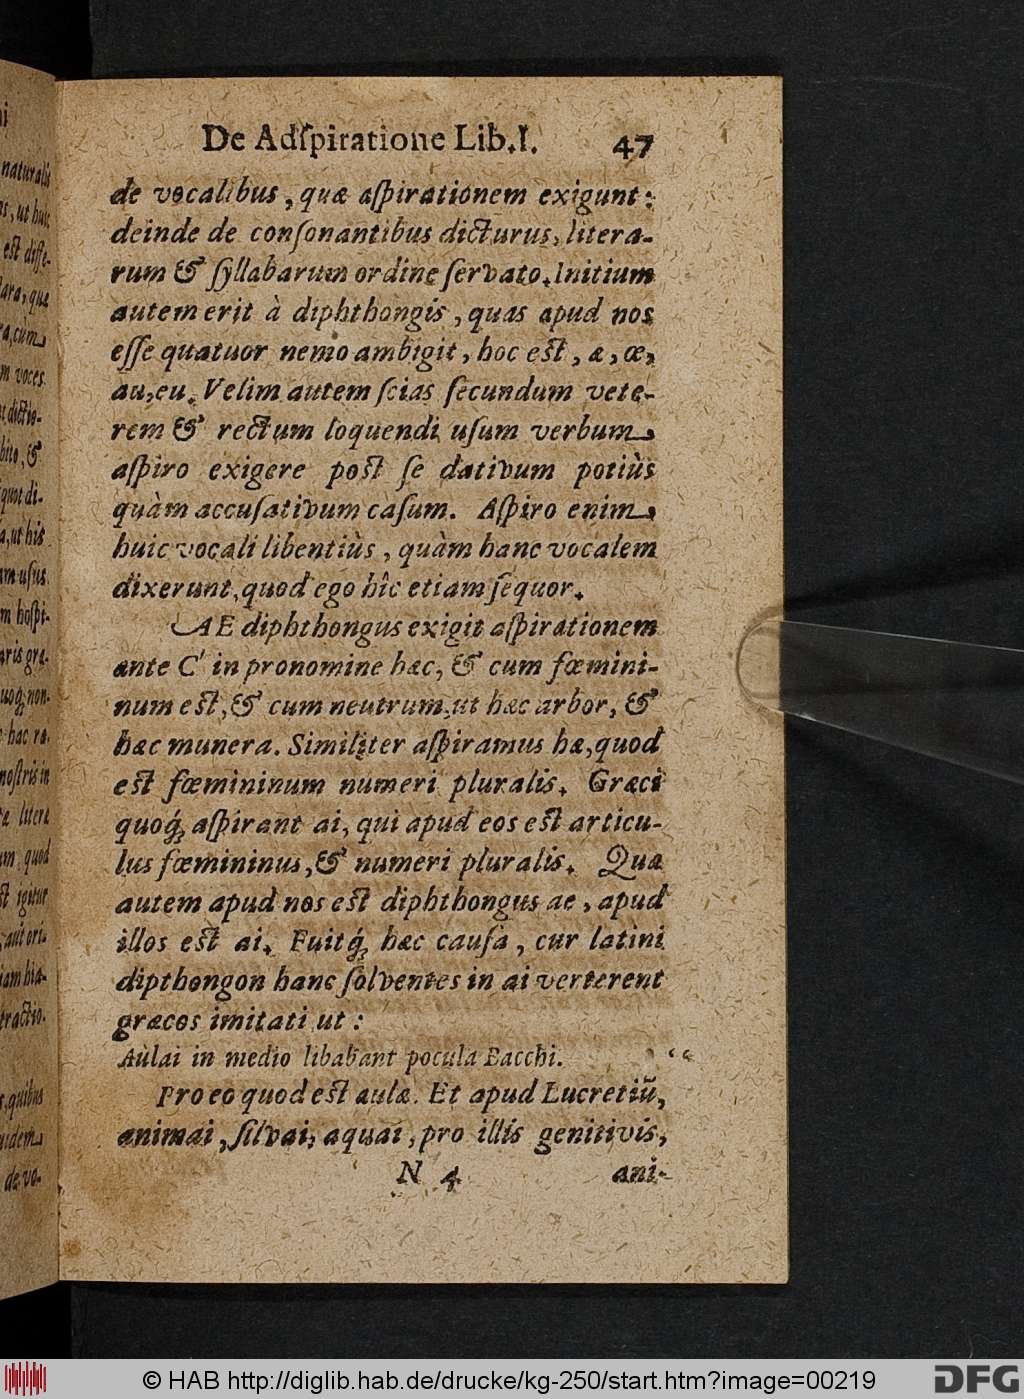 De Adſpiratione Lib.I. 47
de vocalibus, quæ aſpirationem exigunt:
deinde de conſonantibus dicturus, litera-
rum & ſyllabarum ordine ſervato. Initium
autem erit à diphthongis, quas apud nos
eſſe quatuor nemo ambigit, hoc eſt, æ, œ,
au, eu. Velim autem ſcias ſecundum vete-
rem & rectum loquendi uſum verbum
aſpiro exigere poſt ſe dativum potiùs
quàm accuſativum caſum. Aſpiro enim
huic vocali libentiùs, quàm hanc vocalem
dixerunt, quod ego hîc etiam ſequor.
AE diphthongus exigit aſpirationem
ante C in pronomine hæc, & cum fœmini-
num eſt, & cum neutrum, ut hæc arbor, &
hæc munera. Similiter aſpiramus hæ, quod
eſt fœmininum numeri pluralis. Græci
quoq́; aſpirant ai, qui apud eos eſt articu-
lus fœmininus, & numeri pluralis. Quæ
autem apud nos eſt diphthongus ae, apud
illos eſt ai. Fuitq́; hæc cauſa, cur latini
dipthongon hanc ſolventes in ai verterent
græcos imitati ut:
Aùlai in medio libabant pocula Bacchi.
Pro eo quod eſt aulæ. Et apud Lucretiũ,
animai, ſilvai, aquai, pro illis genitivis,
N 4 ani-
naturalis
ut huic
eſt diffe-
qua
cùm
m voces
dictio-
&
quot di-
ut his
am uſus
m hoſpi-
aris græ-
uoq; non-
hac ra-
noſtris in
litera
um quod
ſt igitur
aut ori-
iam hia-
tractio-
quibus
uidem
de vo-
© HAB http://diglib.hab.de/drucke/kg-250/start.htm?image=00219
DFG